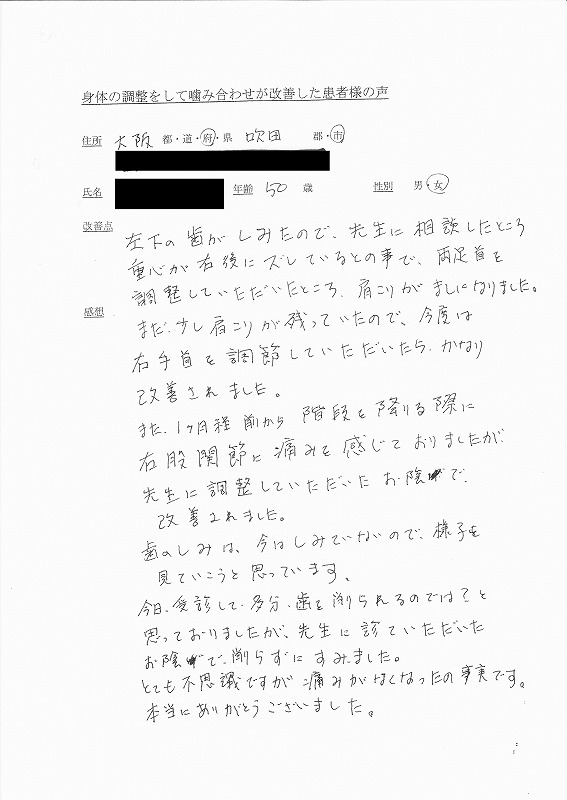 身体の調整をして噛み合わせが改善した患者様の声
住所 大阪 都・道・府・県 吹田 郡・市
氏名 年齢 50 歳 性別 男・女
改善点
左下の歯がしみたので、先生に相談したところ
重心が右後にズレているとの事で、両足首を
調整していただいたところ、肩こりがましになりました。
感想
まだ、少し肩こりが残っていたので、今度は
右手首を調節していただいたら、かなり
改善されました。
また、1ヶ月程前から階段を降りる際に
右股関節に痛みを感じておりましたが
先生に調整していただいたお陰で、
改善されました。
歯のしみは、今はしみていないので、様子を
見ていこうと思っています。
今日、受診して、多分、歯を削られるのでは?と
思っておりましたが、先生に診ていただいた
お陰で、削らずにすみました。
とても不思議ですが痛みがなくなったの事実です。
本当にありがとうございました。